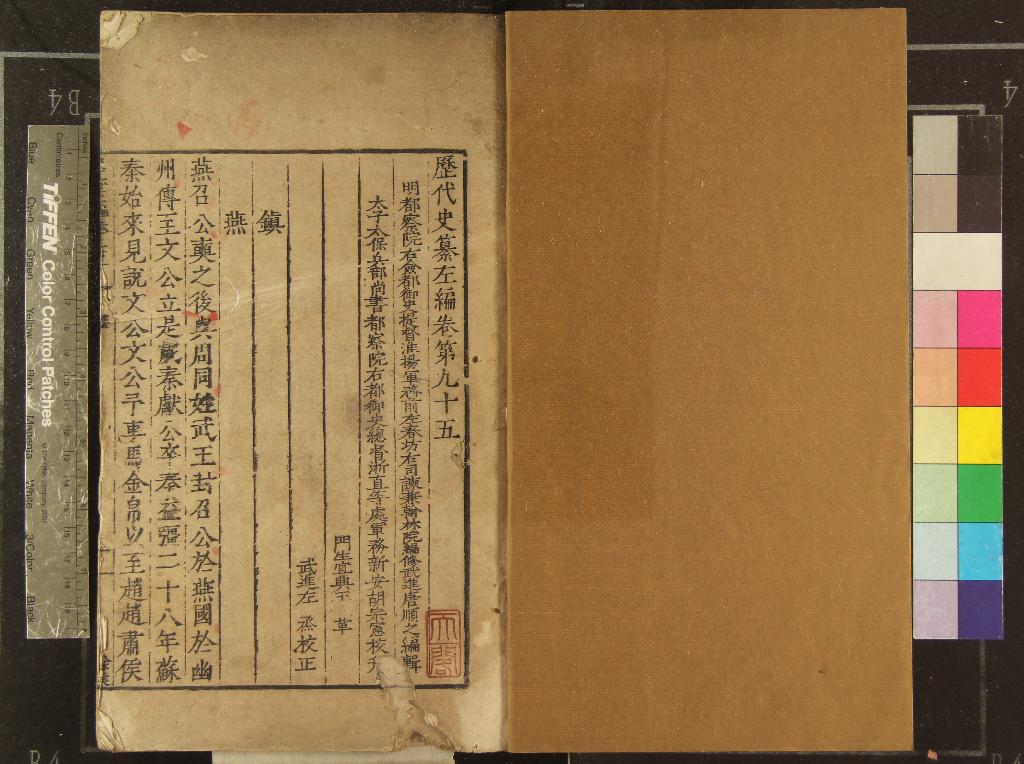 歷代史纂左編卷第九十五
明都察院右僉都御史提督淮揚軍務前左春坊右司諫兼翰林院編修武進唐順之編輯
太子太保兵部尚書都察院右都御史總督浙直等處軍務新安胡宗憲校刊
門生宜興王 革
武進左 烝校正
鎮
燕
燕召公奭之後與周同姓武王封召公於燕國於幽
州傳至文公立是歲秦獻公卒秦益彊二十八年蘇
秦始來見說文公文公予車馬金帛以至趙趙肅侯
TIFFEN Color Control Patches
Centimetres
Blue
Cyan
Green
Yellow
Red
Magenta
White
3/Color
Black
B4